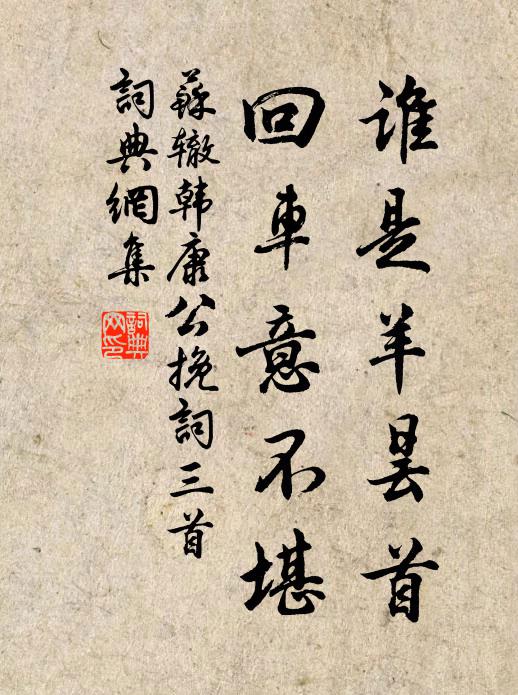 谁是羊昙首
回車意不堪
蘇辙韩康公挽詞三首
詞典網集
詞典网印